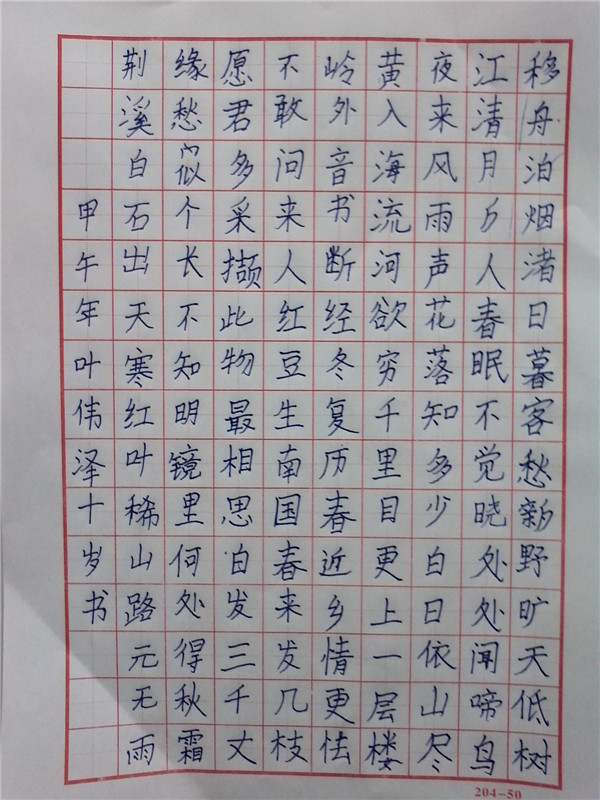 移舟泊烟渚日暮客愁新野旷天低树
江清月人春眠不觉晓处处闻啼鸟
夜来风雨声花落知多少白日依山尽
黄入海流河欲穷千里目更上一层楼
岭外音书断经冬复历春近乡情更怯
不敢问来人红豆生南国春来发几枝
愿君多采撷此物最相思白发三千丈
缘愁似个长不知明镜里何处得秋霜
荆溪白石出天寒红叶稀山路元无雨
甲午年叶伟泽十岁书
204-50